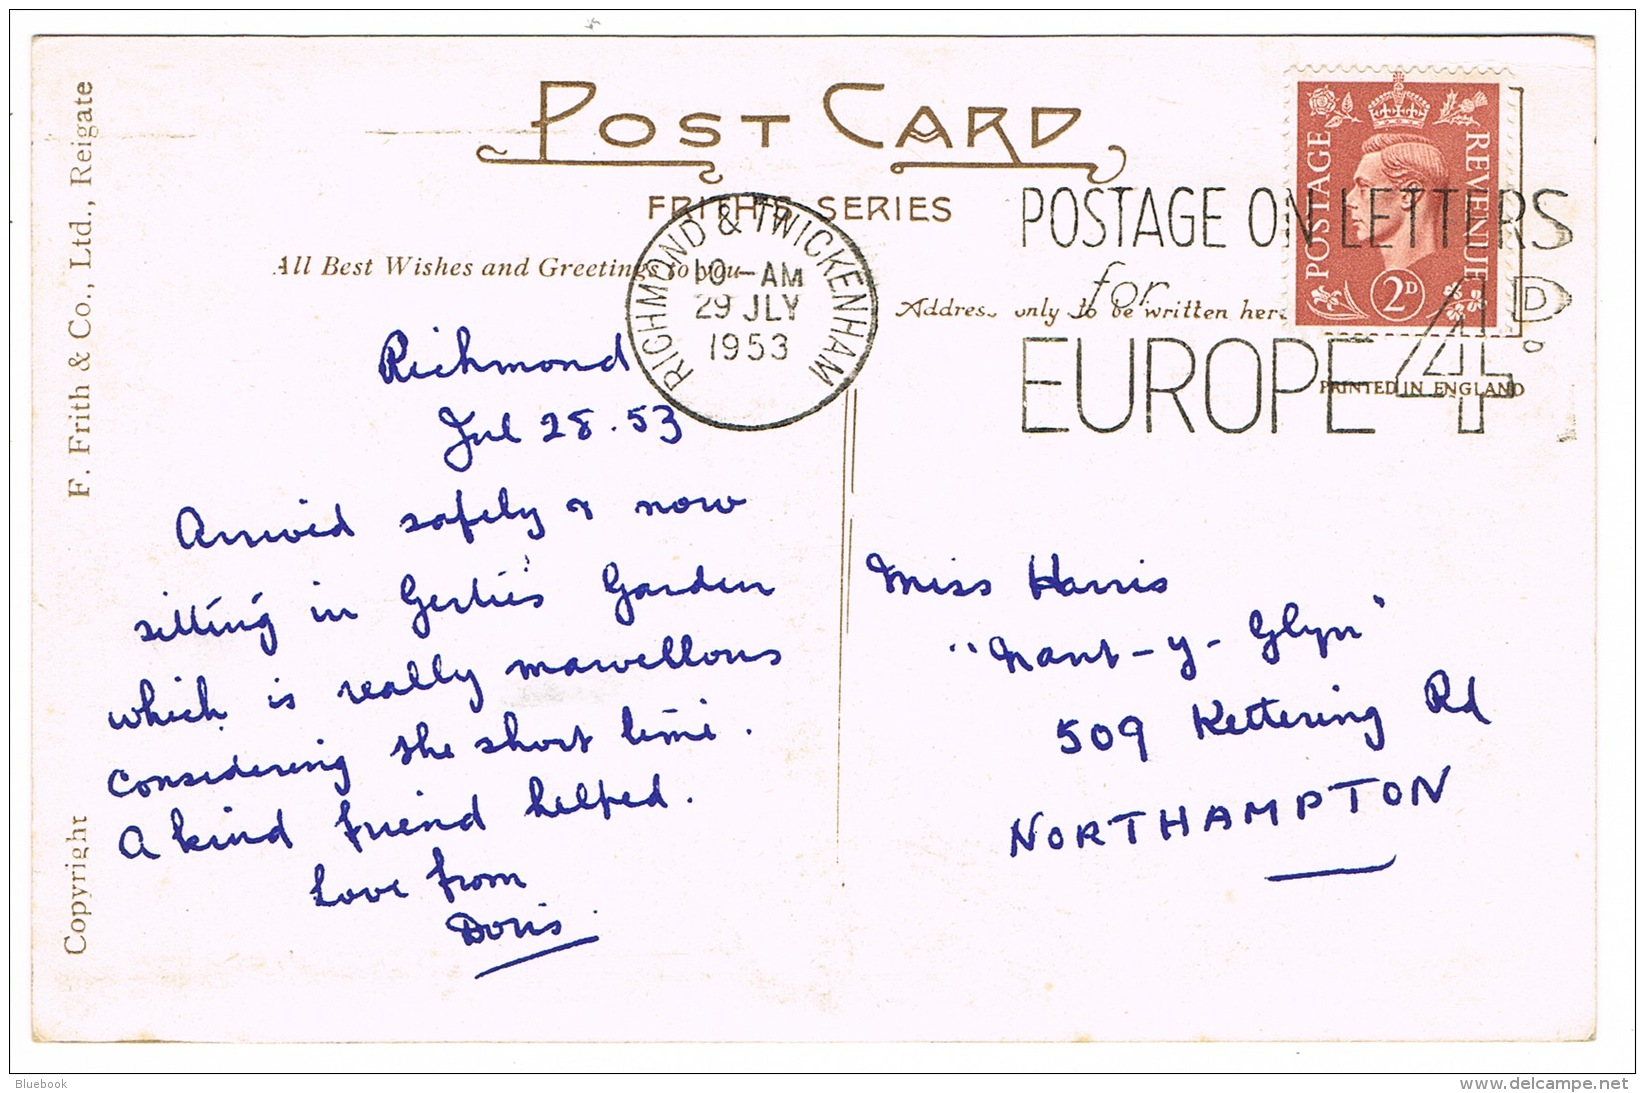 POST CARD
FRITH'S SERIES
All Best Wishes and Greetings to you
Address only to be written here
PRINTED IN ENGLAND
F. Frith & Co., Ltd., Reigate
Copyright
POSTAGE REVENUE
2D
RICHMOND & TWICKENHAM
10-AM
29 JLY
1953
POSTAGE ON LETTERS
for
EUROPE 4D
Richmond
Jul 28.53
Arrived safely & now
sitting in Gertie's Garden
which is really marvellous
considering the short time.
A kind friend helped.
Love from
Doris
Miss Harris
"Nant-y-Glyn"
509 Kettering Rd
NORTHAMPTON
Bluebook
www.delcampe.net